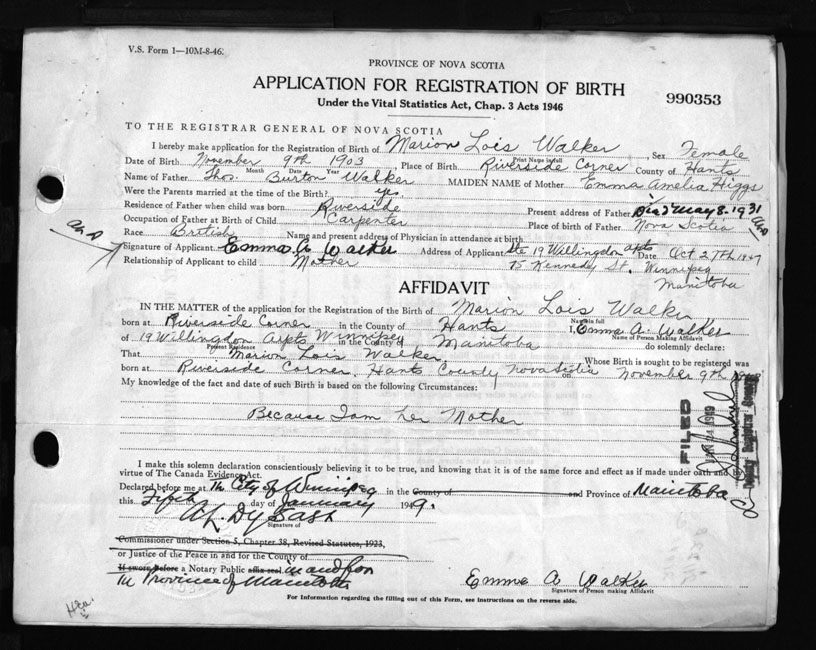 V.S. Form 1—10M-8-46.
PROVINCE OF NOVA SCOTIA
APPLICATION FOR REGISTRATION OF BIRTH
990353
Under the Vital Statistics Act, Chap. 3 Acts 1946
TO THE REGISTRAR GENERAL OF NOVA SCOTIA
I hereby make application for the Registration of Birth of Marion Lois Walker, Sex Female
Print Name in full
Date of Birth November 9th 1903, Place of Birth Riverside Corner County of Hants
Month Date Year
Name of Father Thos. Burton Walker MAIDEN NAME of Mother Emma Amelia Higgs
Were the Parents married at the time of the Birth? yes
Residence of Father when child was born Riverside Present address of Father Died May 8-1931
Occupation of Father at Birth of Child Carpenter Place of birth of Father Nova Scotia
Race British Name and present address of Physician in attendance at birth
Signature of Applicant Emma A Walker Address of Applicant Ste 19 Willingdon apts Date Oct 27th 1947
Relationship of Applicant to child Mother 75 Kennedy St. Winnipeg
Manitoba
AFFIDAVIT
IN THE MATTER of the application for the Registration of the Birth of Marion Lois Walker
Name in full
born at Riverside Corner in the County of Hants I, Emma A. Walker
Name of Person Making Affidavit
of 19 Willingdon Apts Winnipeg in the County of Manitoba do solemnly declare:
Present Residence
That Marion Lois Walker Whose Birth is sought to be registered was
born at Riverside Corner, Hants County Nova Scotia on November 9th
My knowledge of the fact and date of such Birth is based on the following Circumstances:
Because I am her Mother
FILED
1949
Deputy Registrar General
I make this solemn declaration conscientiously believing it to be true, and knowing that it is of the same force and effect as if made under oath and in
virtue of The Canada Evidence Act.
Declared before me at The City of Winnipeg in the County of and Province of Manitoba
this Fifth day of January 1949.
Signature of
Commissioner under Section 5, Chapter 38, Revised Statutes, 1923,
or Justice of the Peace in and for the County of
If sworn before a Notary Public affix seal in and for
The Province of Manitoba
Emma A Walker
Signature of Person making Affidavit
For Information regarding the filling out of this Form, see instructions on the reverse side.